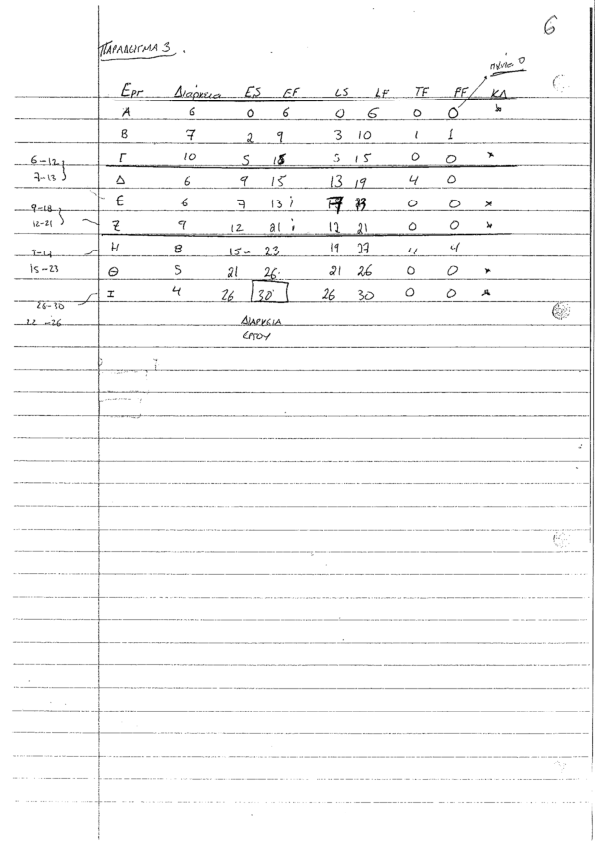 6
ΠΑΡΑΔΕΙΓΜΑ 3.
πάντα 0
Εργ Διάρκεια ES EF LS LF TF FF ΚΔ
Α 6 0 6 0 6 0 0 *
Β 7 2 9 3 10 1 1
6-12 Γ 10 5 15 5 15 0 0 *
7-13 Δ 6 9 15 13 19 4 0
9-18 Ε 6 7 13 0 0 *
12-21 Ζ 9 12 21 12 21 0 0 *
Η 8 15- 23 19 27 4
15-23 Θ 5 21 26 21 26 0 0 *
26-30 Ι 4 26 30 26 30 0 0 *
22-26 ΔΙΑΡΚΕΙΑ
ΕΡΓΟΥ